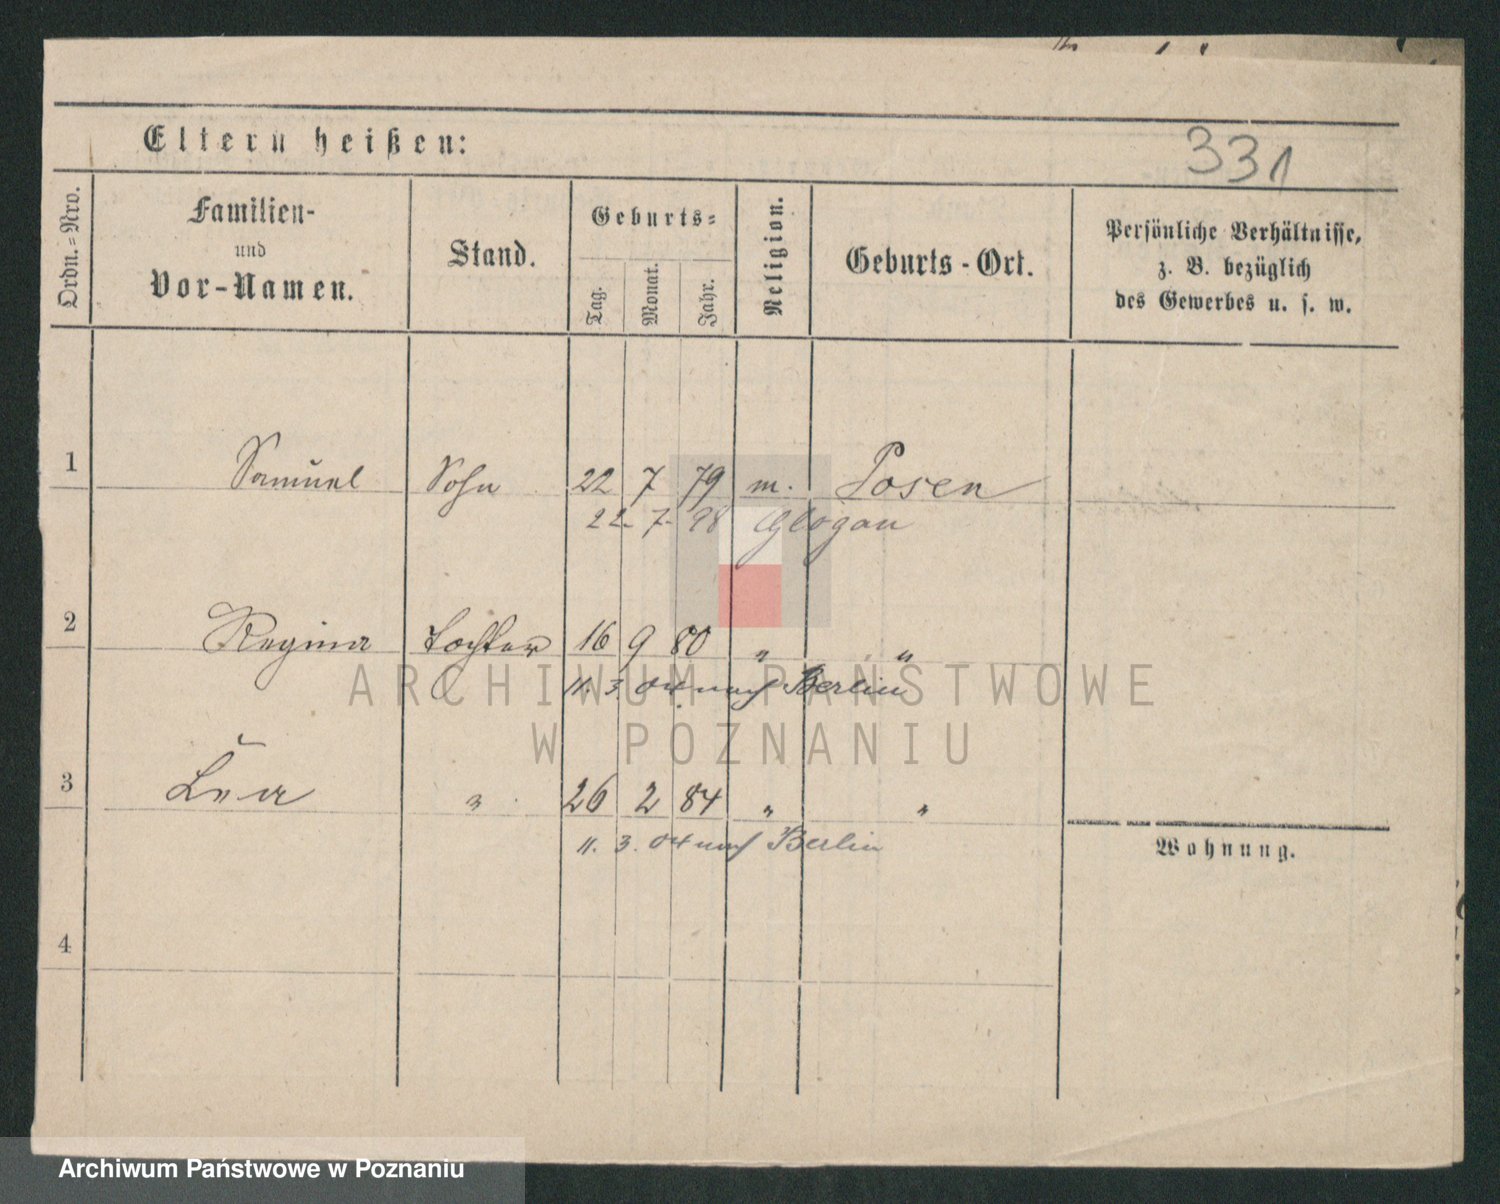 Eltern heißen:
331
Ordn.=Nro.
Familien-
und
Vor-Namen.
Stand.
Geburts=
Tag.
Monat.
Jahr.
Religion.
Geburts-Ort.
Persönliche Verhältnisse,
z. B. bezüglich
des Gewerbes u. s. w.
1 Samuel Sohn 22 7 79 m. Posen
22. 7. 98 Glogau
2 Regina Tochter 16 9 80 " "
11. 3. 04 nach Berlin
3 Lea " 26 2 84 " "
11. 3. 04 nach Berlin
Wohnung.
4
ARCHIWUM PAŃSTWOWE
W POZNANIU
Archiwum Państwowe w Poznaniu